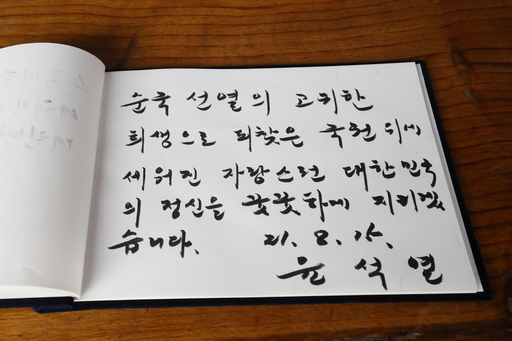 순국 선열의 고귀한
희생으로 되찾은 국헌 위에
세워진 자랑스런 대한민국
의 정신을 꿋꿋하게 지키겠
습니다. 21. 8. 15.
윤석열